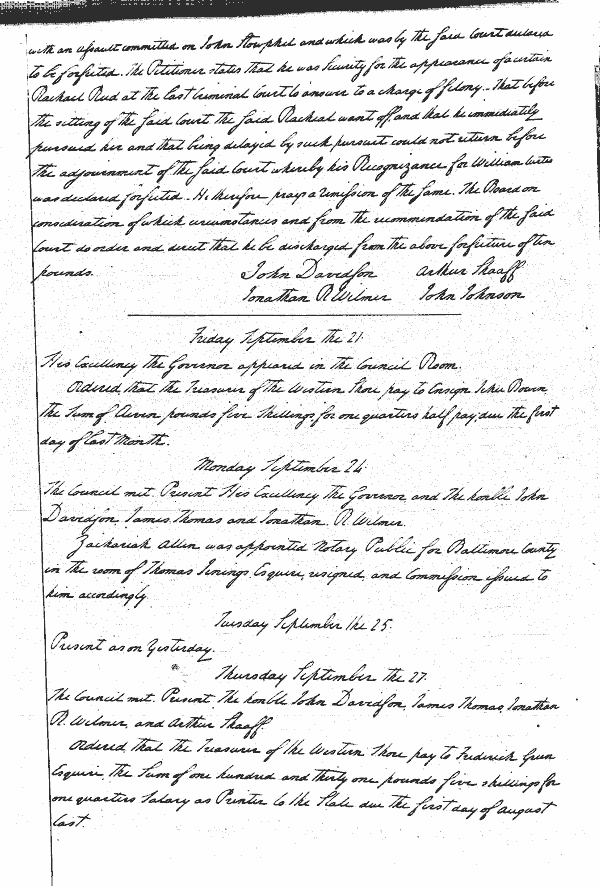 with an assault committed on John Stouphel and which was by the said Court declared
to be forfeited. The Petitioner states that he was Security for the appearance of a certain
Rachael Rud at the last Criminal Court to answer to a charge of felony. That before
the sitting of the said Court the said Rachael went off and that he immediately
pursued her and that being delayed by such pursuit could not return before
the adjournment of the said Court whereby his Recognizance for William
was declared forfeited. He therefore prays a remission of the same. The Board on
consideration of which circumstances and from the recommendation of the said
Court do order and direct that he be discharged from the above forfeiture of ten
pounds. John Davidson Arthur Shaaff
Jonathan R Wilmer John Johnson
Friday September the 21.
His Excellency the Governor appeared in the Council Room.
Ordered that the Treasurer of the Western Shore pay to Ensign John Bowen
the Sum of Seven pounds five Shillings for one quarters half pay, due the first
day of last Month.
Monday September 24.
The Council met. Present His Excellency the Governor and the honble John
Davidson, James Thomas and Jonathan R. Wilmer.
Zachariah Allen was appointed Notary Public for Baltimore County
in the room of Thomas Jenings Esquire, resigned, and Commission issued to
him accordingly.
Tuesday September the 25.
Present as on Yesterday.
Thursday September the 27.
The Council met. Present the honble John Davidson, James Thomas, Jonathan
R. Wilmer, and Arthur Shaaff
Ordered that the Treasurer of the Western Shore pay to Frederick Green
Esquire the Sum of one hundred and thirty one pounds five shillings for
one quarters Salary as Printer to the State due the first day of August
last.